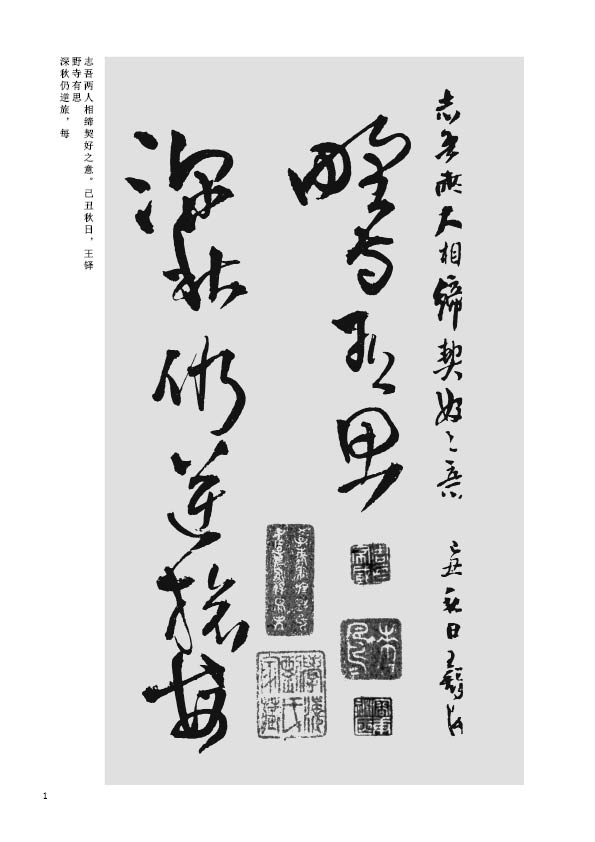 志吾兩人相締契好之意 己丑秋日王鐸
野寺有思
深秋仍逆旅每
志吾两人相缔契好之意。己丑秋日，王铎
野寺有思
深秋仍逆旅，每
1